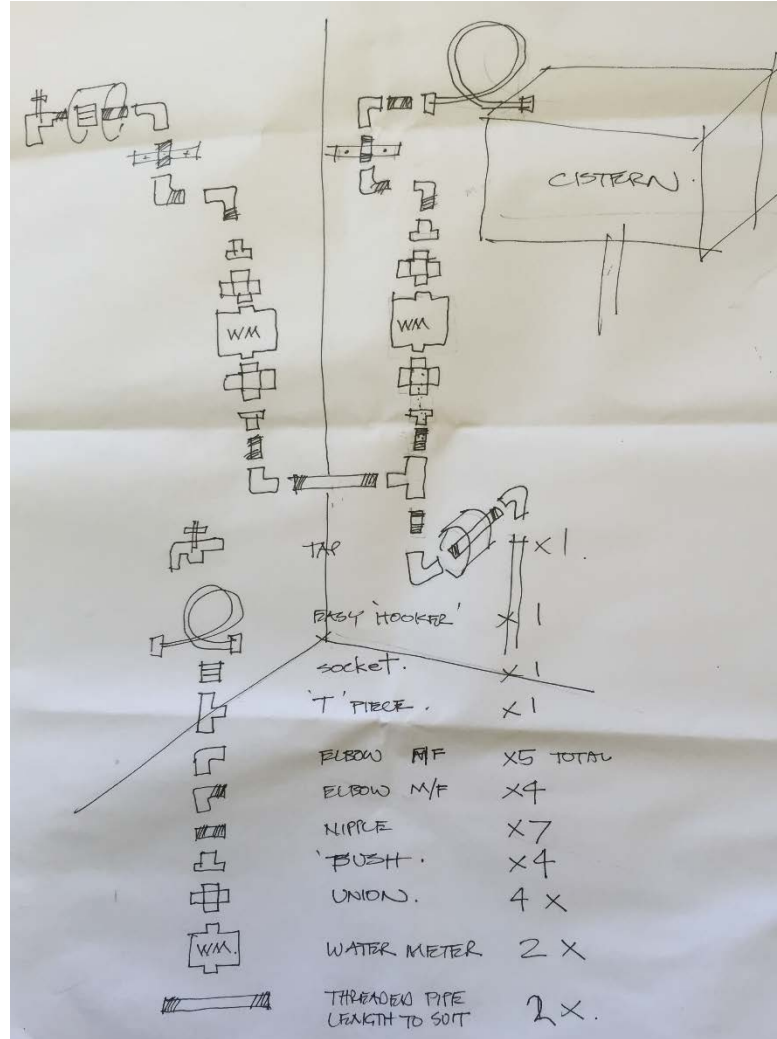 CISTERN.
WM
WM
TAP X 1.
EASY 'HOOKER' X 1
socket. X 1
'T' PIECE. X1
ELBOW M/F X5 TOTAL
ELBOW M/F X4
NIPPLE X7
'BUSH. X4
UNION. 4 X
WM. WATER METER 2 X
THREADED PIPE
LENGTH TO SUIT 2X.